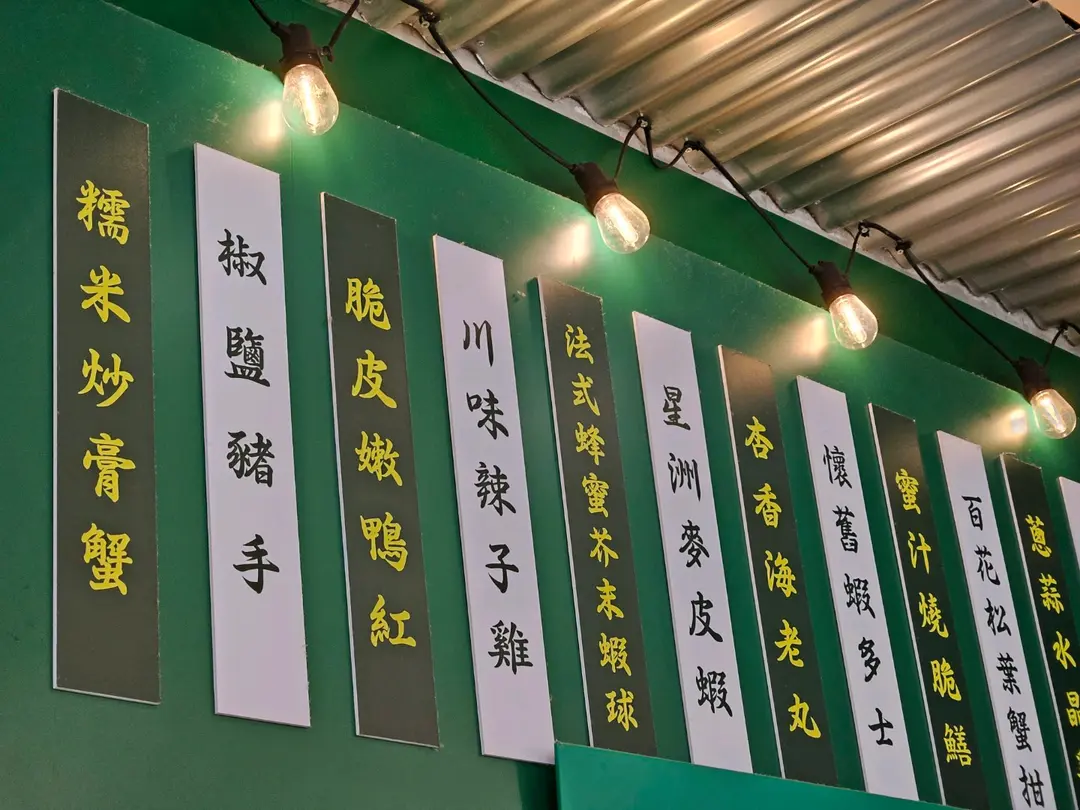 糯米炒膏蟹
椒鹽豬手
脆皮嫩鴨紅
川味辣子雞
法式蜂蜜芥末蝦球
星洲麥皮蝦
杏香海老丸
懷舊蝦多士
蜜汁燒脆鱔
百花松葉蟹拑
蔥蒜水晶